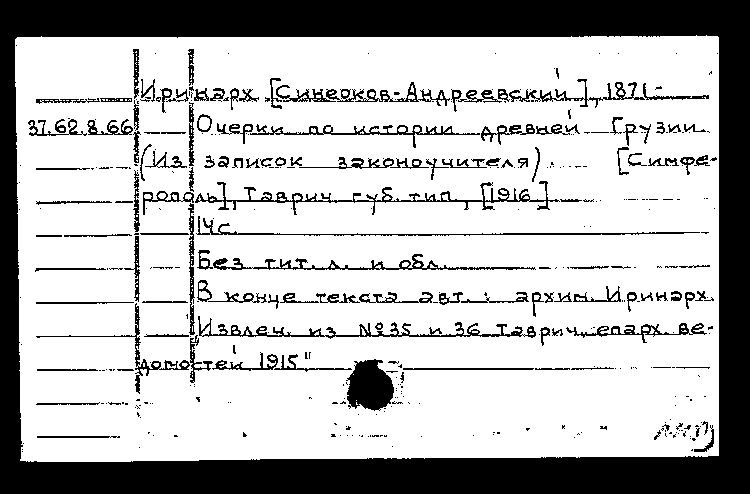 Иринарх [Синеоков-Андреевский], 1871-
37.62.8.66 Очерки по истории древней Грузии
(Из записок законоучителя). [Симфе-
рополь], Таврич. губ. тип., [1916]
14 с.
Без тит. л. и обл.
В конце текста авт.: архим. Иринарх.
"Извлеч. из №35 и 36 Таврич. епарх. ве-
домостей 1915"